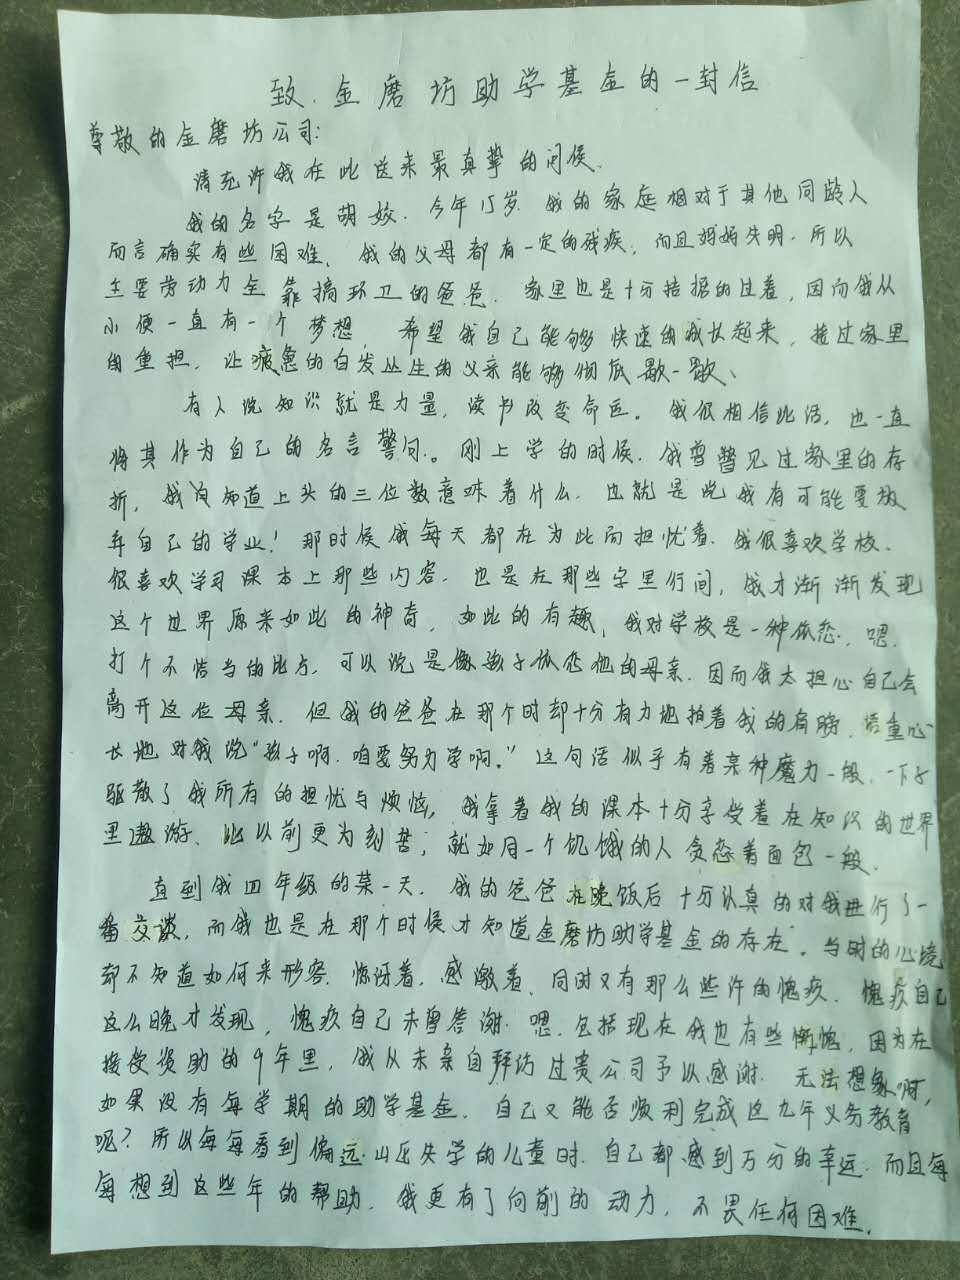 致金磨坊助学基金的一封信
尊敬的金磨坊公司:
请允许我在此送来最真挚的问候.
我的名字是胡姣. 今年15岁. 我的家庭相对于其他同龄人
而言确实有些困难. 我的父母都有一定的残疾, 而且妈妈失明. 所以
主要劳动力全靠搞环卫的爸爸. 家里也是十分拮据的过着, 因而我从
小便一直有一个梦想, 希望我自己能够快速的成长起来, 接过家里
的重担, 让疲惫的白发丛生的父亲能够彻底歇一歇、
有人说知识就是力量, 读书改变命运。我很相信此话, 也一直
将其作为自己的名言警句。刚上学的时候. 我曾瞥见过家里的存
折, 我知道上头的三位数意味着什么. 也就是说我有可能要放
弃自己的学业! 那时候我每天都在为此而担忧着. 我很喜欢学校.
很喜欢学习课本上那些内容. 也是在那些字里行间, 我才渐渐发现
这个世界原来如此的神奇, 如此的有趣, 我对学校是一种依恋. 嗯.
打个不恰当的比方, 可以说是像孩子依恋他的母亲. 因而我太担心自己会
离开这位母亲. 但我的爸爸在那个时却十分有力地拍着我的肩膀, 语重心
长地对我说“孩子啊. 咱要努力学啊。”这句话似乎有着某种魔力一般, 一下子
驱散了我所有的担忧与烦恼, 我拿着我的课本十分享受着在知识的世界
里遨游. 比以前更为刻苦, 就如同一个饥饿的人贪恋着面包一般.
直到我四年级的某一天. 我的爸爸在晚饭后十分认真的对我进行了一
番交谈, 而我也是在那个时候才知道金磨坊助学基金的存在。当时的心境
却不知道如何来形容. 惊讶着, 感激着, 同时又有那么些许的愧疚. 愧疚自己
这么晚才发现, 愧疚自己未曾答谢. 嗯. 包括现在我也有些惭愧, 因为在
接受资助的9年里, 我从未亲自拜访过贵公司予以感谢. 无法想象啊,
如果没有每学期的助学基金. 自己又能否顺利完成这九年义务教育
呢? 所以每每看到偏远山区失学的儿童时. 自己都感到万分的幸运. 而且每
每想到这些年的帮助. 我更有了向前的动力, 不畏任何困难.